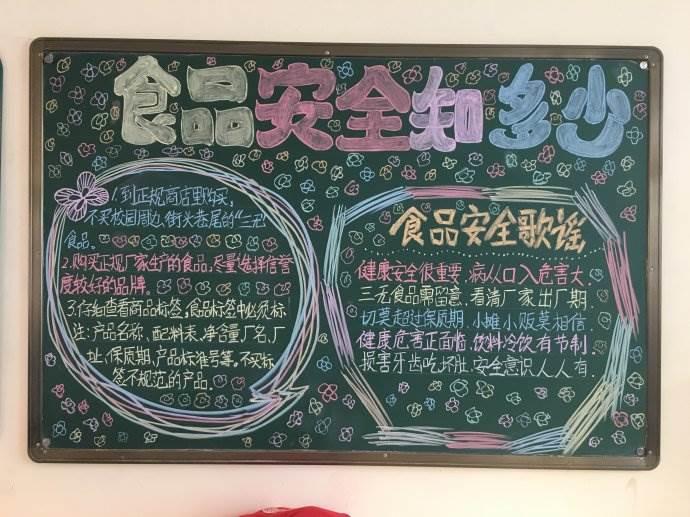 食品安全知多少
1.到正规商店里购买,
不买校园周边、街头巷尾的“三无”
食品。
2.购买正规厂家生产的食品,尽量选择信誉
度较好的品牌。
3.仔细查看商品标签,食品标签中必须标
注:产品名称、配料表、净含量、厂名、厂
址、保质期、产品标准号等。不买标
签不规范的产品。
食品安全歌谣
健康安全很重要,病从口入危害大.
三无食品需留意,看清厂家出厂期.
切莫超过保质期,小摊小贩莫相信.
健康危害正面临,饮料冷饮有节制.
损害牙齿吃坏肚,安全意识人人有.